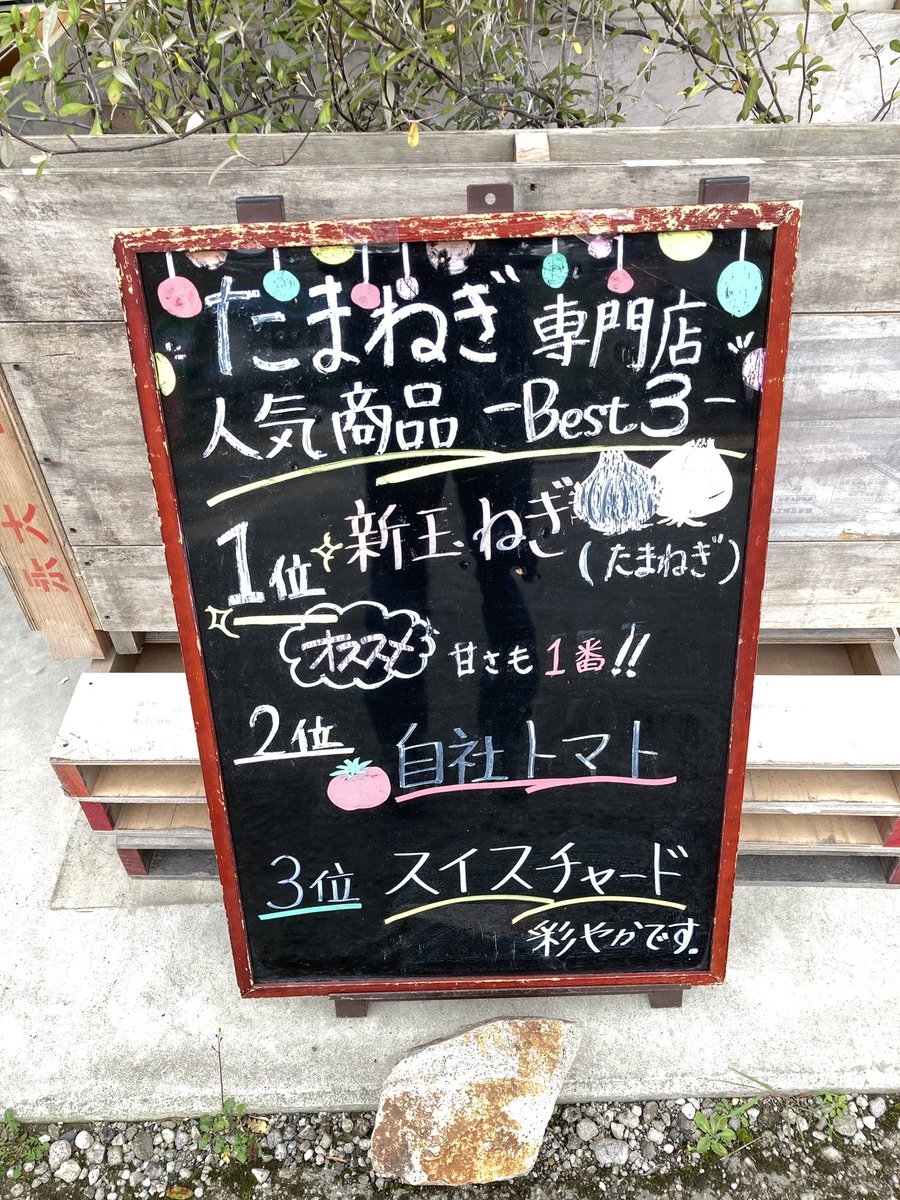 たまねぎ専門店
人気商品 -Best3-
1位 新玉ねぎ
(たまねぎ)
オススメ 甘さも1番!!
2位 自社トマト
3位 スイスチャード
彩やかです.
大